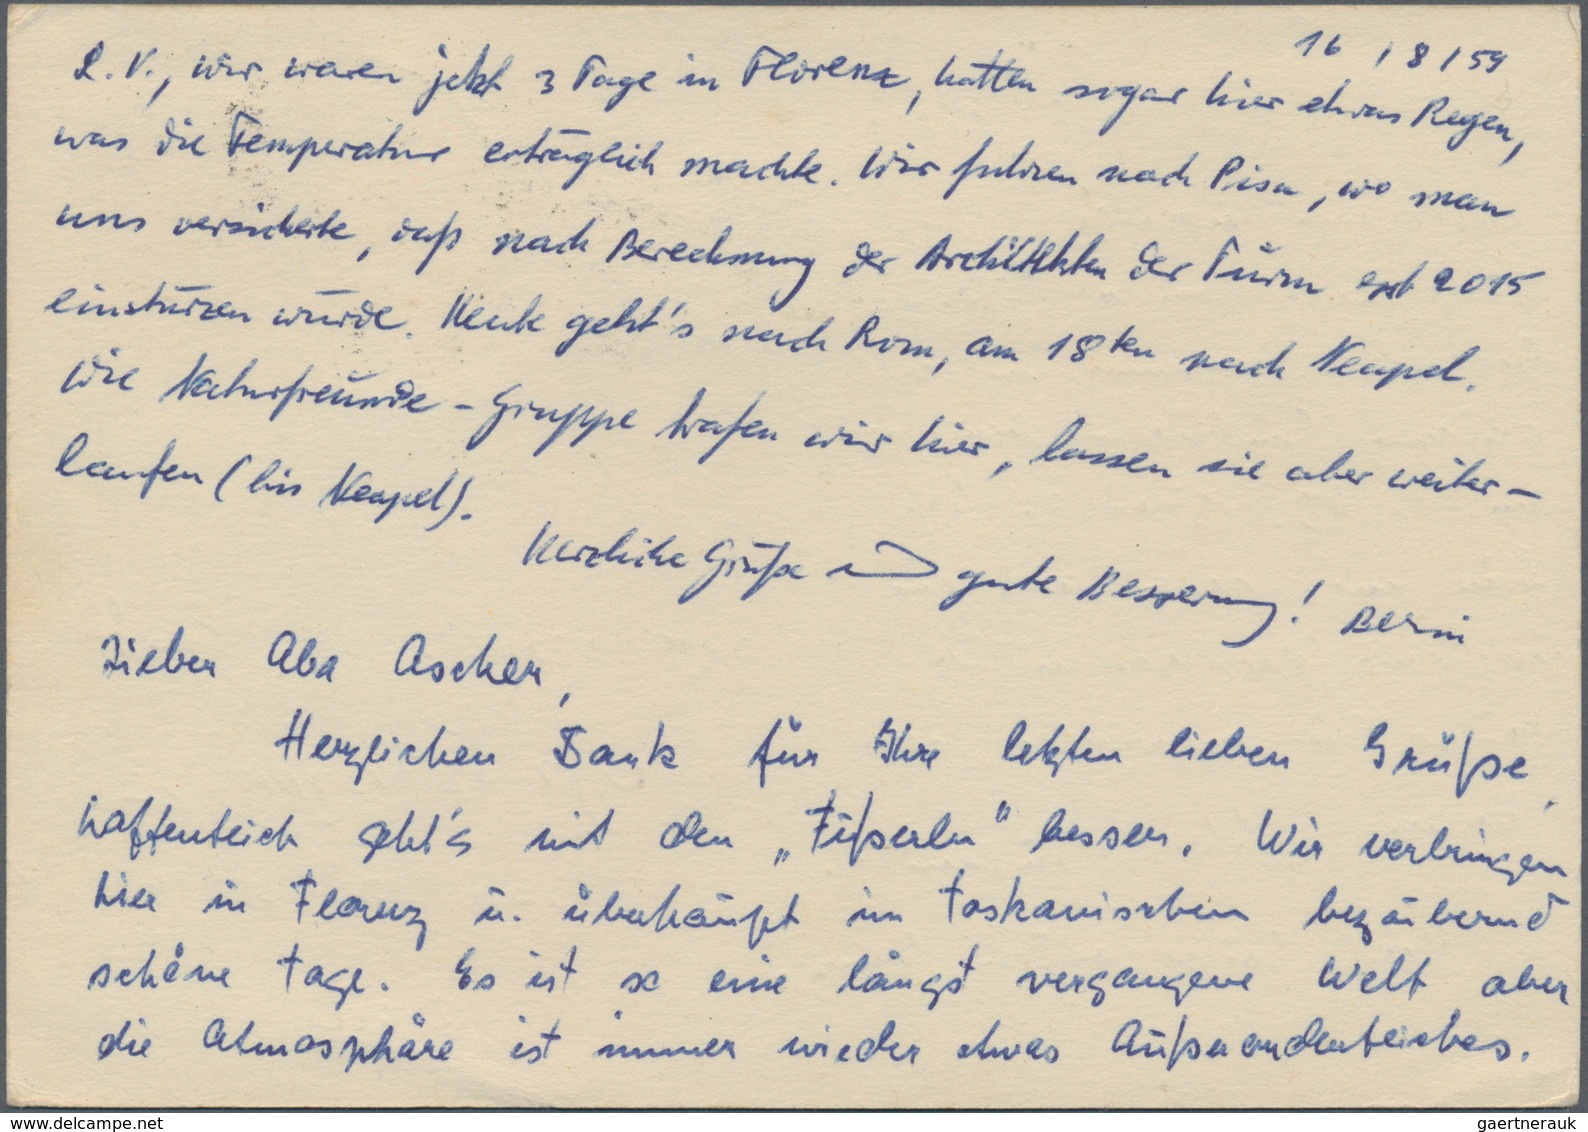 16/8/59
L. V., wir waren jetzt 3 Tage in Florenz, hatten sogar hier etwas Regen,
was die Temperatur erträglich machte. Wir fuhren nach Pisa, wo man
uns versicherte, daß nach Berechnung der Architekten der Turm erst 2015
einstürzen würde. Heute geht's nach Rom, am 18ten nach Neapel.
Die Naturfreunde-Gruppe trafen wir hier, lassen sie aber weiter-
laufen (bis Neapel).
Herzliche Grüße und gute Besserung!
Lieber Aba Ascher,
Herzlichen Dank für Ihre letzten lieben Grüße,
hoffentlich geht's mit den „Füßerln" besser. Wir verbringen
hier in Florenz u. überhaupt im toskanischen bezaubernd
schöne Tage. Es ist so eine längst vergangene Welt aber
die Atmosphäre ist immer wieder etwas Außerordentliches.
gaertnerauk